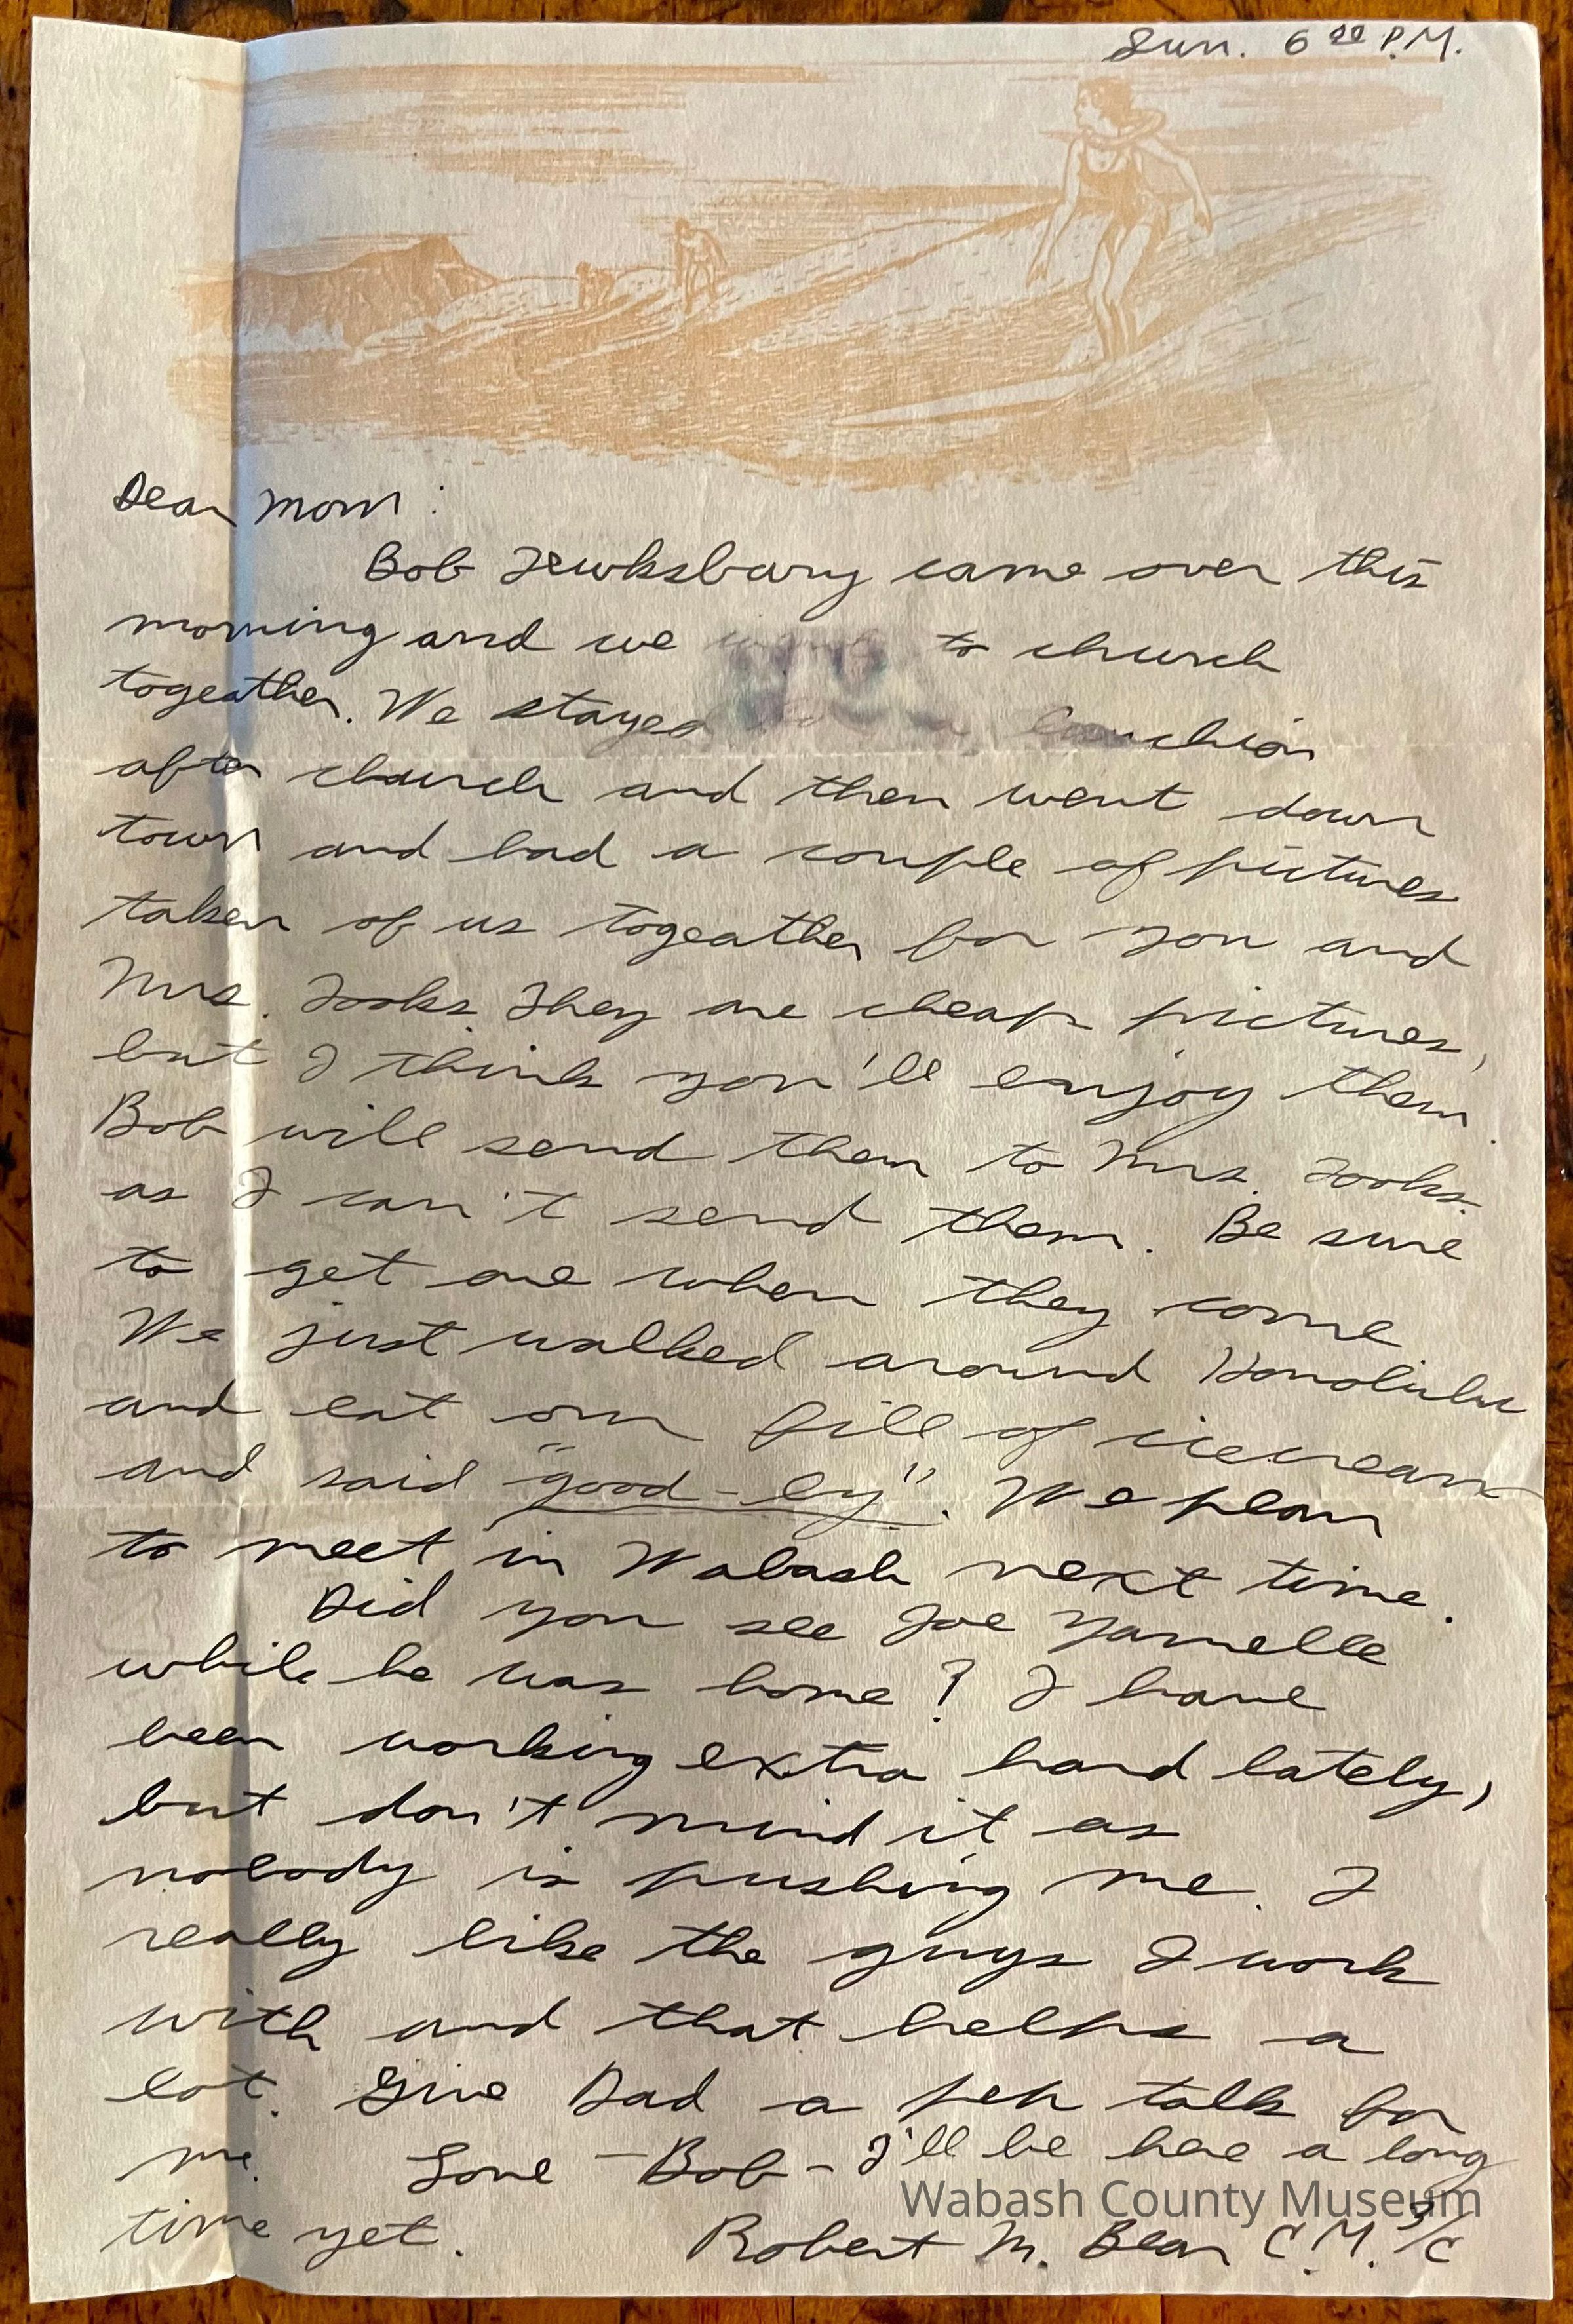 Sun. 6 00 P.M.
Dear Mom:
Bob Tewksbury came over this
morning and we to church
togeather. We stayed
after church and then went down
town and had a couple of pictures
taken of us togeather for you and
Mrs. Tooks. They are cheap pictures,
but I think you'll enjoy them.
Bob will send them to Mrs. Tooks.
as I can't send them. Be sure
to get one when they come
We just walked around Honolulu
and eat our fill of icecream
and said "good-by". We plan
to meet in Wabash next time.
Did you see Joe Yarnelle
while he was home? I have
been working extra hard lately,
but don't mind it as
nobody is pushing me. I
really like the guys I work
with and that helps a
lot. Give Dad a pep talk for
me. Love - Bob - I'll be here a long
time yet.
Wabash County Museum
Robert M. Bear C.M. 3/C